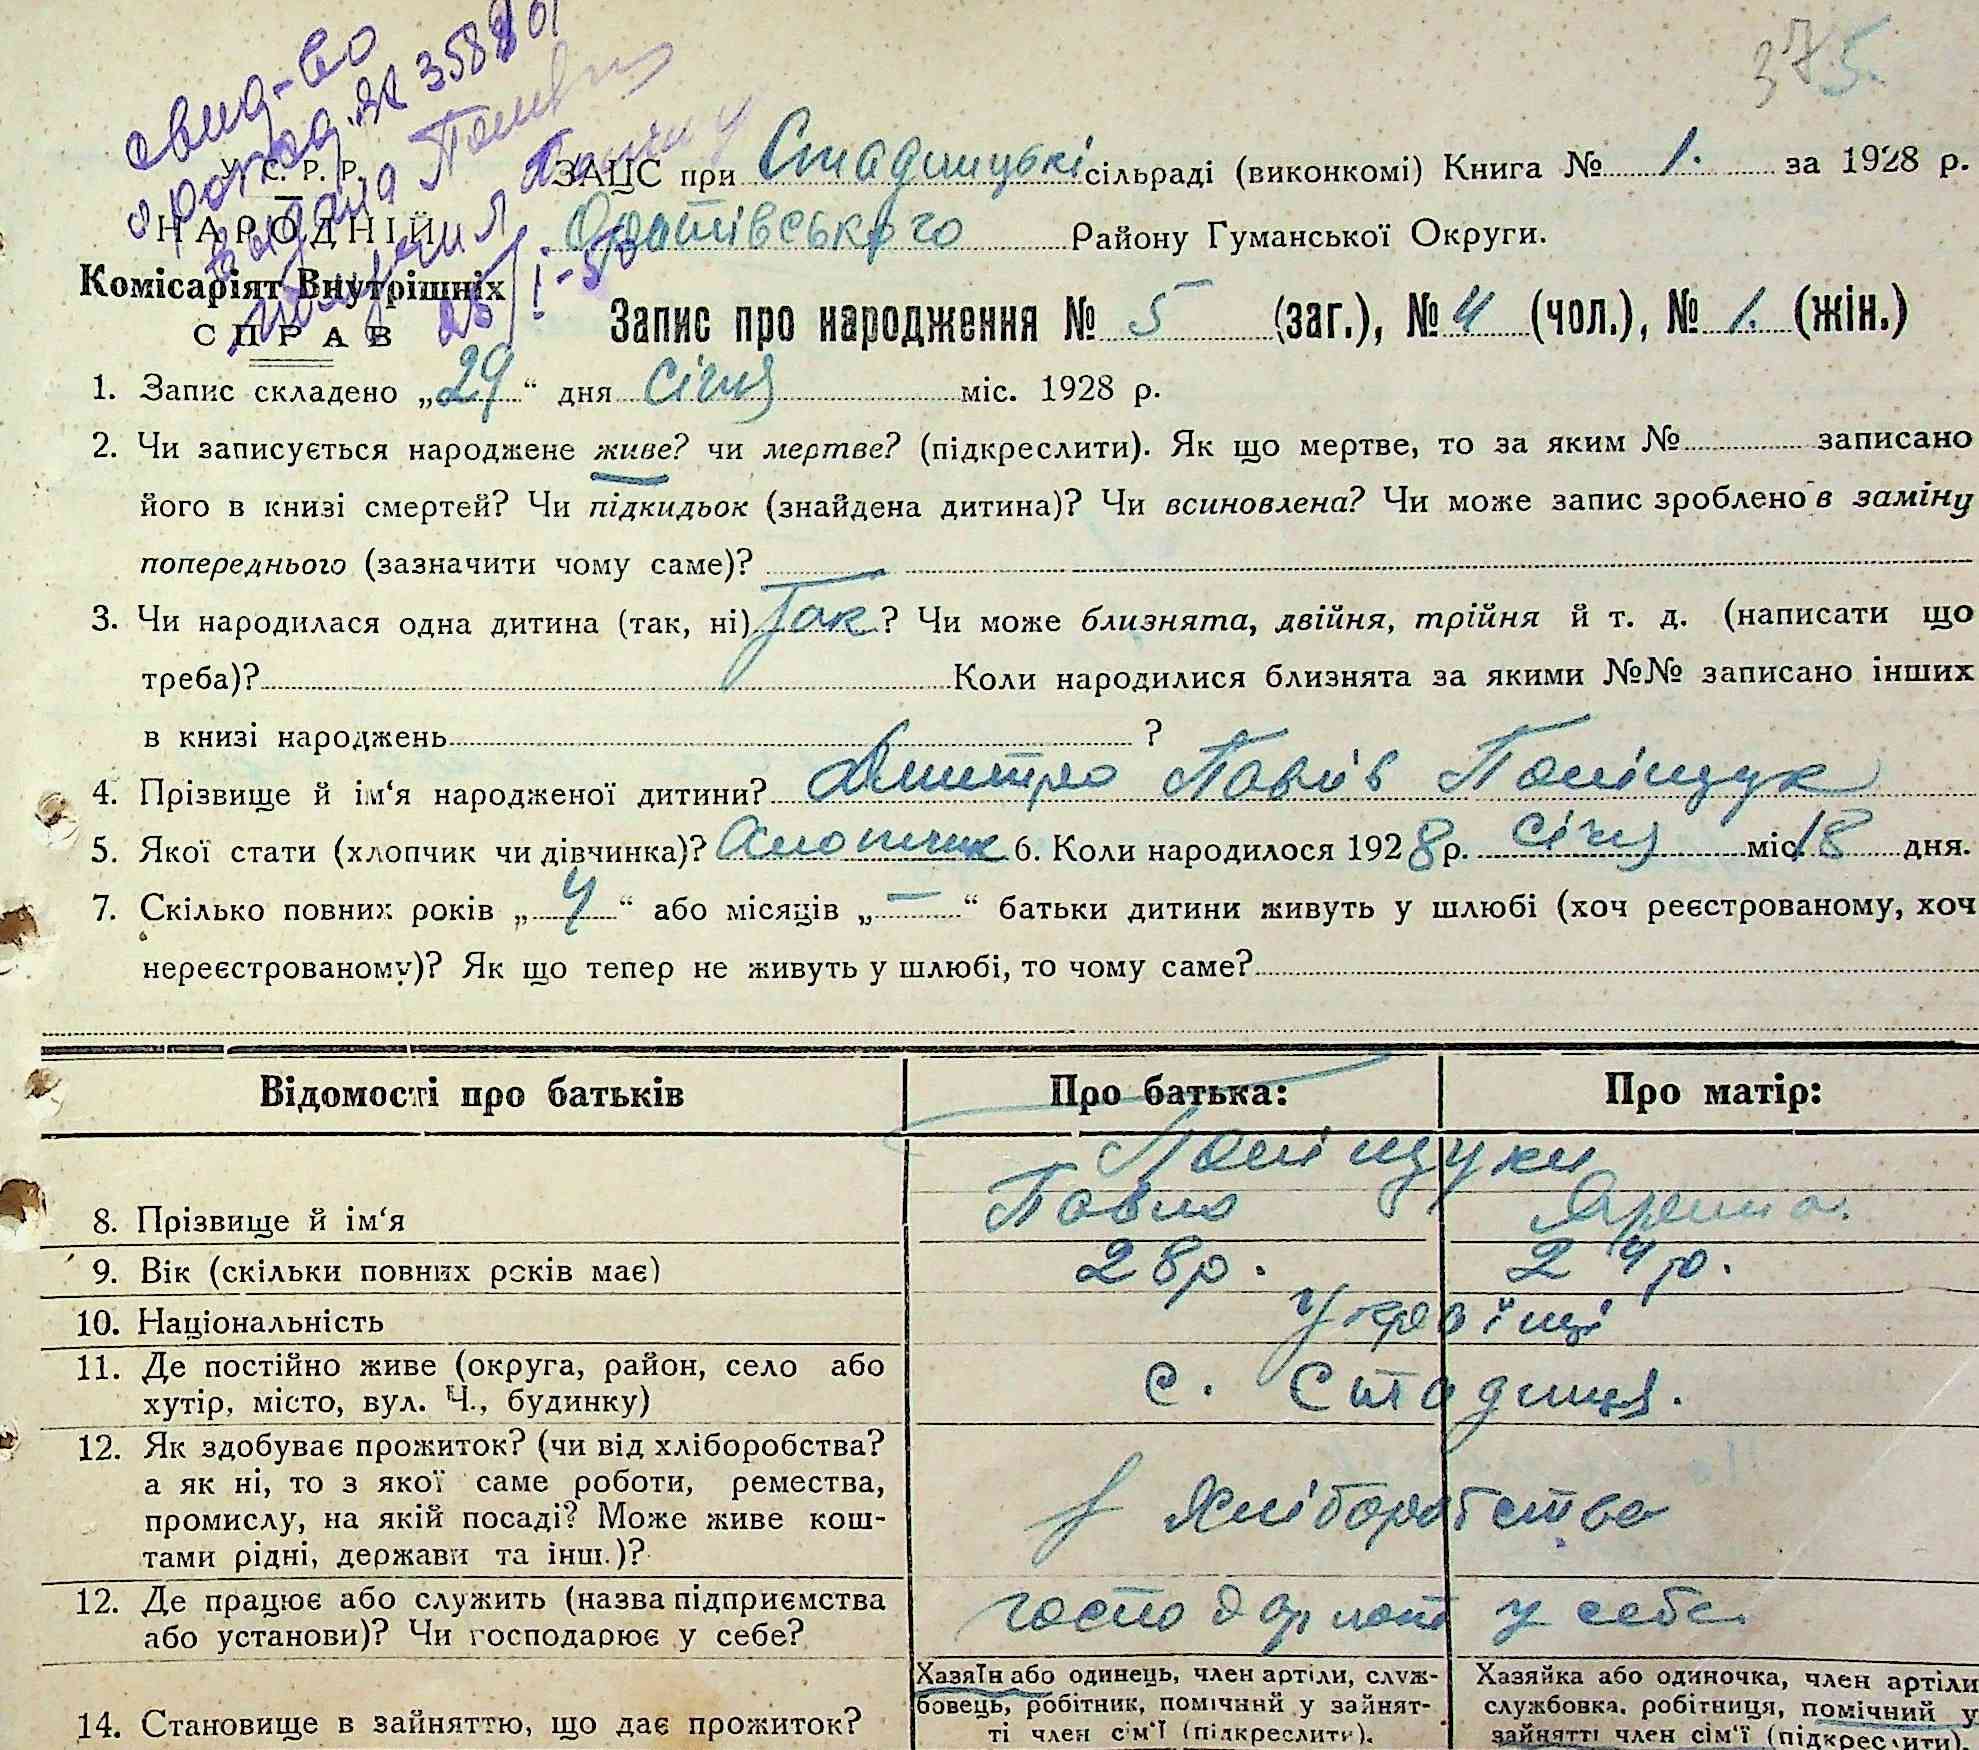 375.
свид-во
о рожд. № 3588
выдана
получил
25/I-50
У. С. Р. Р.
НАРОДНІЙ
Комісаріят Внутрішніх
СПРАВ
ЗАЦС при Стадницькі сільраді (виконкомі) Книга № 1. за 1928 р.
Оратівського Району Гуманської Округи.
Запис про народження № 5 (заг.), № 4 (чол.), № 1. (жін.)
1. Запис складено „29“ дня Січня міс. 1928 р.
2. Чи записується народжене живе? чи мертве? (підкреслити). Як що мертве, то за яким № записано
його в книзі смертей? Чи підкидьок (знайдена дитина)? Чи всиновлена? Чи може запис зроблено в заміну
попереднього (зазначити чому саме)?
3. Чи народилася одна дитина (так, ні) Так? Чи може близнята, двійня, трійня й т. д. (написати що
треба)? Коли народилися близнята за якими №№ записано інших
в книзі народжень ?
4. Прізвище й ім‘я народженої дитини? Дмитро Павлів Поліщук
5. Якої стати (хлопчик чи дівчинка)? Хлопчик 6. Коли народилося 1928 р. Січня міс. 18 дня.
7. Скілько повних років „4“ або місяців „—“ батьки дитини живуть у шлюбі (хоч реєстрованому, хоч
нереєстрованому)? Як що тепер не живуть у шлюбі, то чому саме?
Відомості про батьків Про батька: Про матір:
Поліщуки
8. Прізвище й ім‘я Павло Ярина.
9. Вік (скільки повних років має) 28 р. 24 р.
10. Національність Українці
11. Де постійно живе (округа, район, село або
хутір, місто, вул. Ч., будинку) с. Стадниця.
12. Як здобуває прожиток? (чи від хліборобства?
а як ні, то з якої саме роботи, ремества,
промислу, на якій посаді? Може живе кош-
тами рідні, держави та інш.)? Хліборобства
12. Де працює або служить (назва підприємства
або установи)? Чи господарює у себе? господарюють у себе
14. Становище в зайняттю, що дає прожиток?
Хазяїн або одинець, член артіли, служ-
бовець, робітник, помічний у зайнят-
ті член сім‘ї (підкреслити).
Хазяйка або одиночка, член артіли
службовка, робітниця, помічний у
зайнятті член сім‘ї (підкреслити).